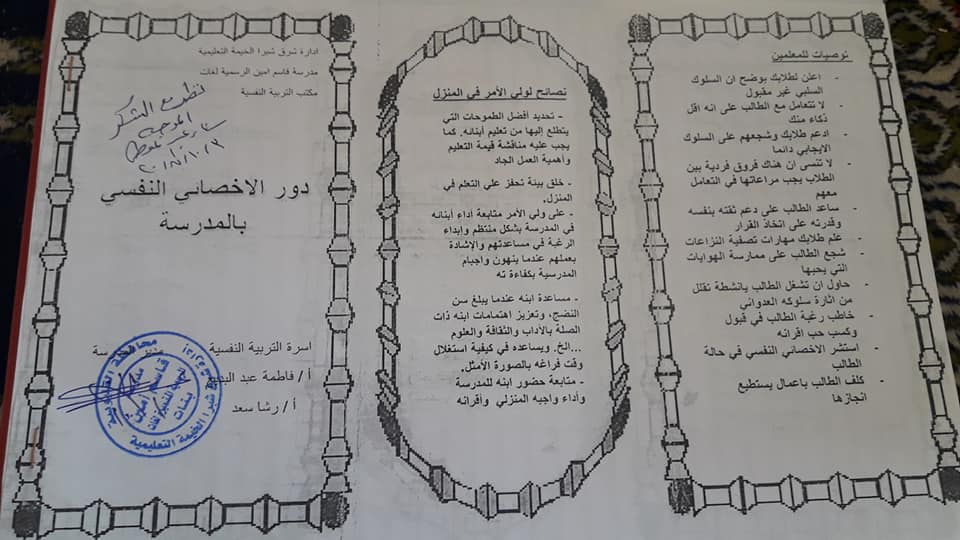 توصيات للمعلمين
- اعلن لطلابك بوضح ان السلوك
السلبي غير مقبول
- لا تتعامل مع الطالب على انه اقل
ذكاء منك
- ادعم طلابك وشجعهم على السلوك
الايجابي دائما
- لا تنسى ان هناك فروق فردية بين
الطلاب يجب مراعاتها في التعامل
معهم
- ساعد الطالب على دعم ثقته بنفسه
وقدرته على اتخاذ القرار
- علم طلابك مهارات تصفية النزاعات
- شجع الطالب على ممارسة الهوايات
التي يحبها
- حاول ان تشغل الطالب بانشطة تقلل
من اثارة سلوكه العدواني
- خاطب رغبة الطالب في قبول
وكسب حب اقرانه
- استشر الاخصائي النفسي في حالة
الطالب
- كلف الطالب باعمال يستطيع
انجازها
نصائح لولي الأمر في المنزل
- تحديد أفضل الطموحات التي
يتطلع إليها من تعليم أبنائه. كما
يجب عليه مناقشة قيمة التعليم
وأهمية العمل الجاد
- خلق بيئة تحفز علي التعلم في
المنزل.
- على ولي الأمر متابعة أداء أبنائه
في المدرسة بشكل منتظم وإبداء
الرغبة في مساعدتهم والإشادة
بعملهم عندما ينهون واجبام
المدرسية بكفاءة ته
- مساعدة ابنه عندما يبلغ سن
النضج، وتعزيز اهتمامات ابنه ذات
الصلة بالآداب والثقافة والعلوم
...الخ. ويساعده في كيفية استغلال
وقت فراغه بالصورة الأمثل.
- متابعة حضور ابنه للمدرسة
وأداء واجبه المنزلي وأقرانه
ادارة شرق شبرا الخيمة التعليمية
مدرسة قاسم امين الرسمية لغات
مكتب التربية النفسية
الشكر
دور الاخصائي النفسي
بالمدرسة
اسرة التربية النفسية
أ / فاطمة عبد
أ / رشا سعد
محافظة القليوبية
شبرا الخيمة التعليمية
قاسم امين